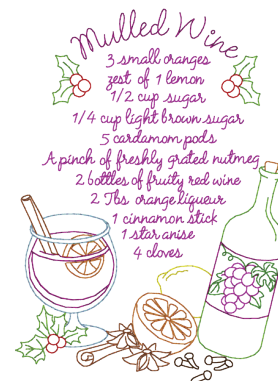 Mulled Wine
3 small oranges
zest of 1 lemon
1/2 cup sugar
1/4 cup light brown sugar
5 cardamom pods
A pinch of freshly grated nutmeg
2 bottles of fruity red wine
2 Tbs orange liqueur
1 cinnamon stick
1 star anise
4 cloves